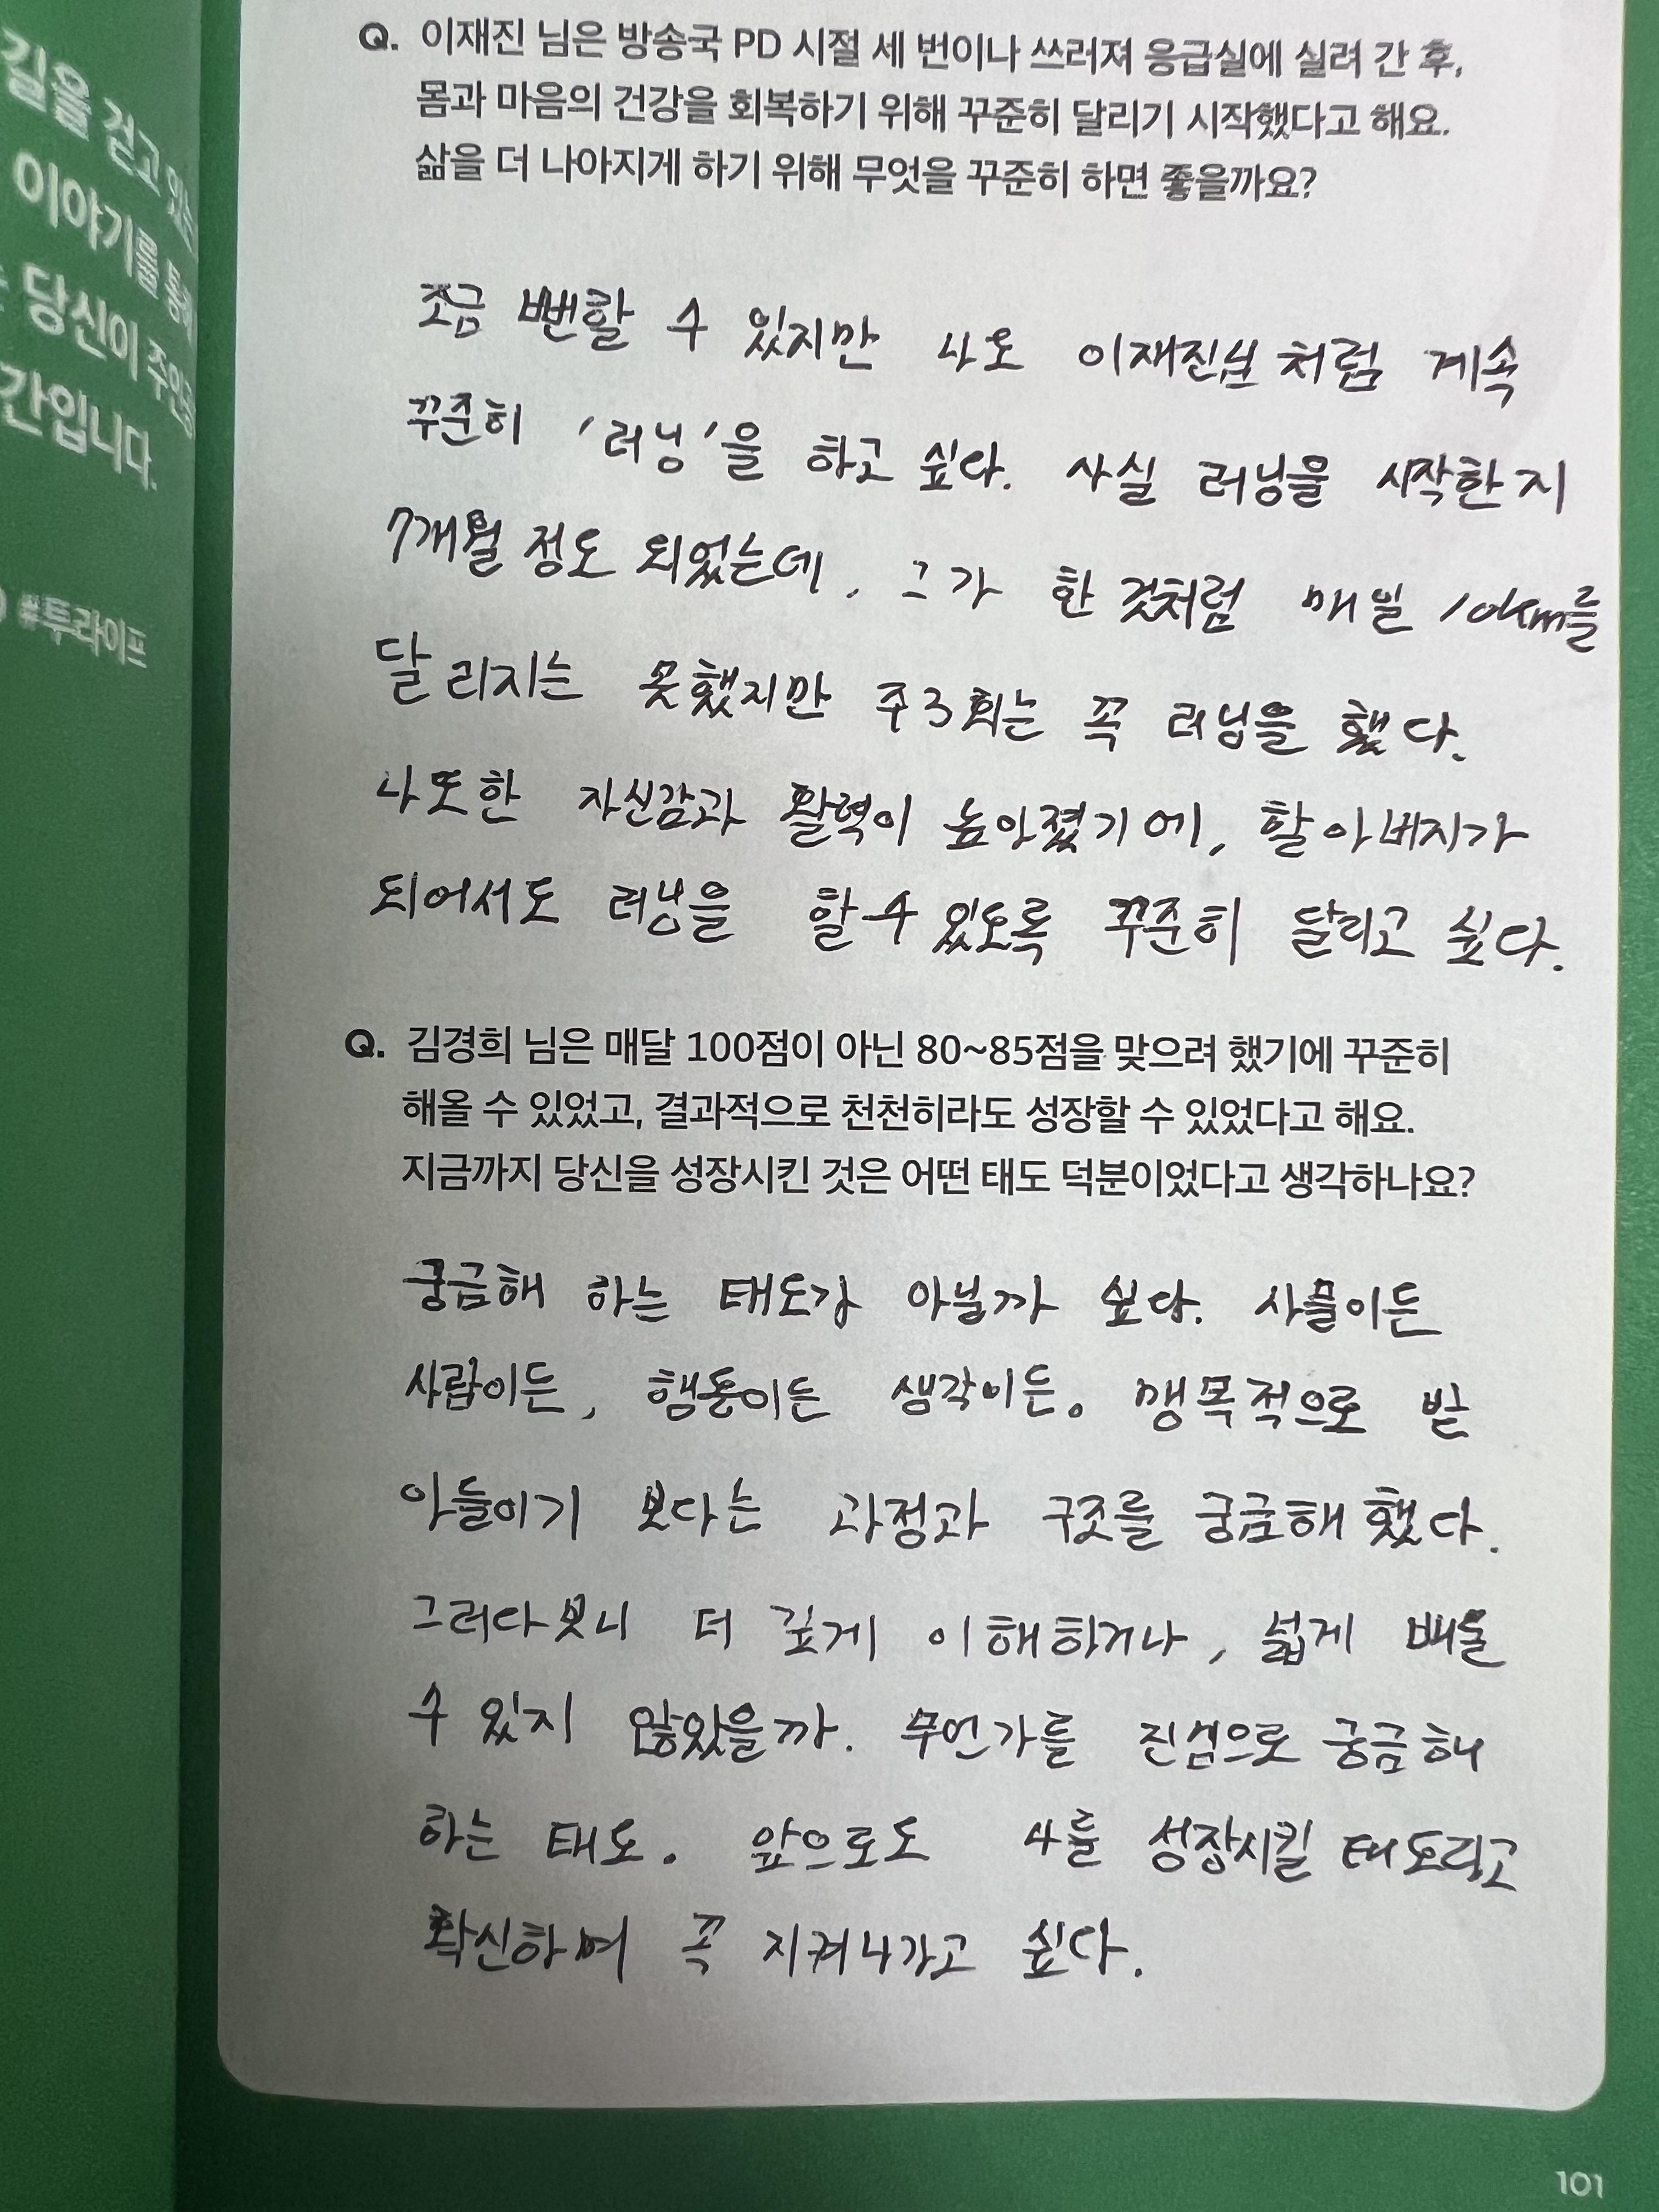 길을 걷고 있는
이야기를 통해
당신이 주인공
간입니다.
#투라이프
Q. 이재진 님은 방송국 PD 시절 세 번이나 쓰러져 응급실에 실려 간 후,
몸과 마음의 건강을 회복하기 위해 꾸준히 달리기 시작했다고 해요.
삶을 더 나아지게 하기 위해 무엇을 꾸준히 하면 좋을까요?
조금 뻔할 수 있지만 나도 이재진님처럼 계속
꾸준히 '러닝'을 하고 싶다. 사실 러닝을 시작한지
7개월 정도 되었는데, 그가 한 것처럼 매일 10km를
달리지는 못했지만 주3회는 꼭 러닝을 했다.
나또한 자신감과 활력이 높아졌기에, 할아버지가
되어서도 러닝을 할 수 있도록 꾸준히 달리고 싶다.
Q. 김경희 님은 매달 100점이 아닌 80~85점을 맞으려 했기에 꾸준히
해올 수 있었고, 결과적으로 천천히라도 성장할 수 있었다고 해요.
지금까지 당신을 성장시킨 것은 어떤 태도 덕분이었다고 생각하나요?
궁금해 하는 태도가 아닐까 싶다. 사물이든
사람이든, 행동이든 생각이든. 맹목적으로 받
아들이기 보다는 과정과 구조를 궁금해 했다.
그러다보니 더 깊게 이해하거나, 넓게 배울
수 있지 않았을까. 무언가를 진심으로 궁금해
하는 태도. 앞으로도 나를 성장시킬 태도라고
확신하며 꼭 지켜나가고 싶다.
101